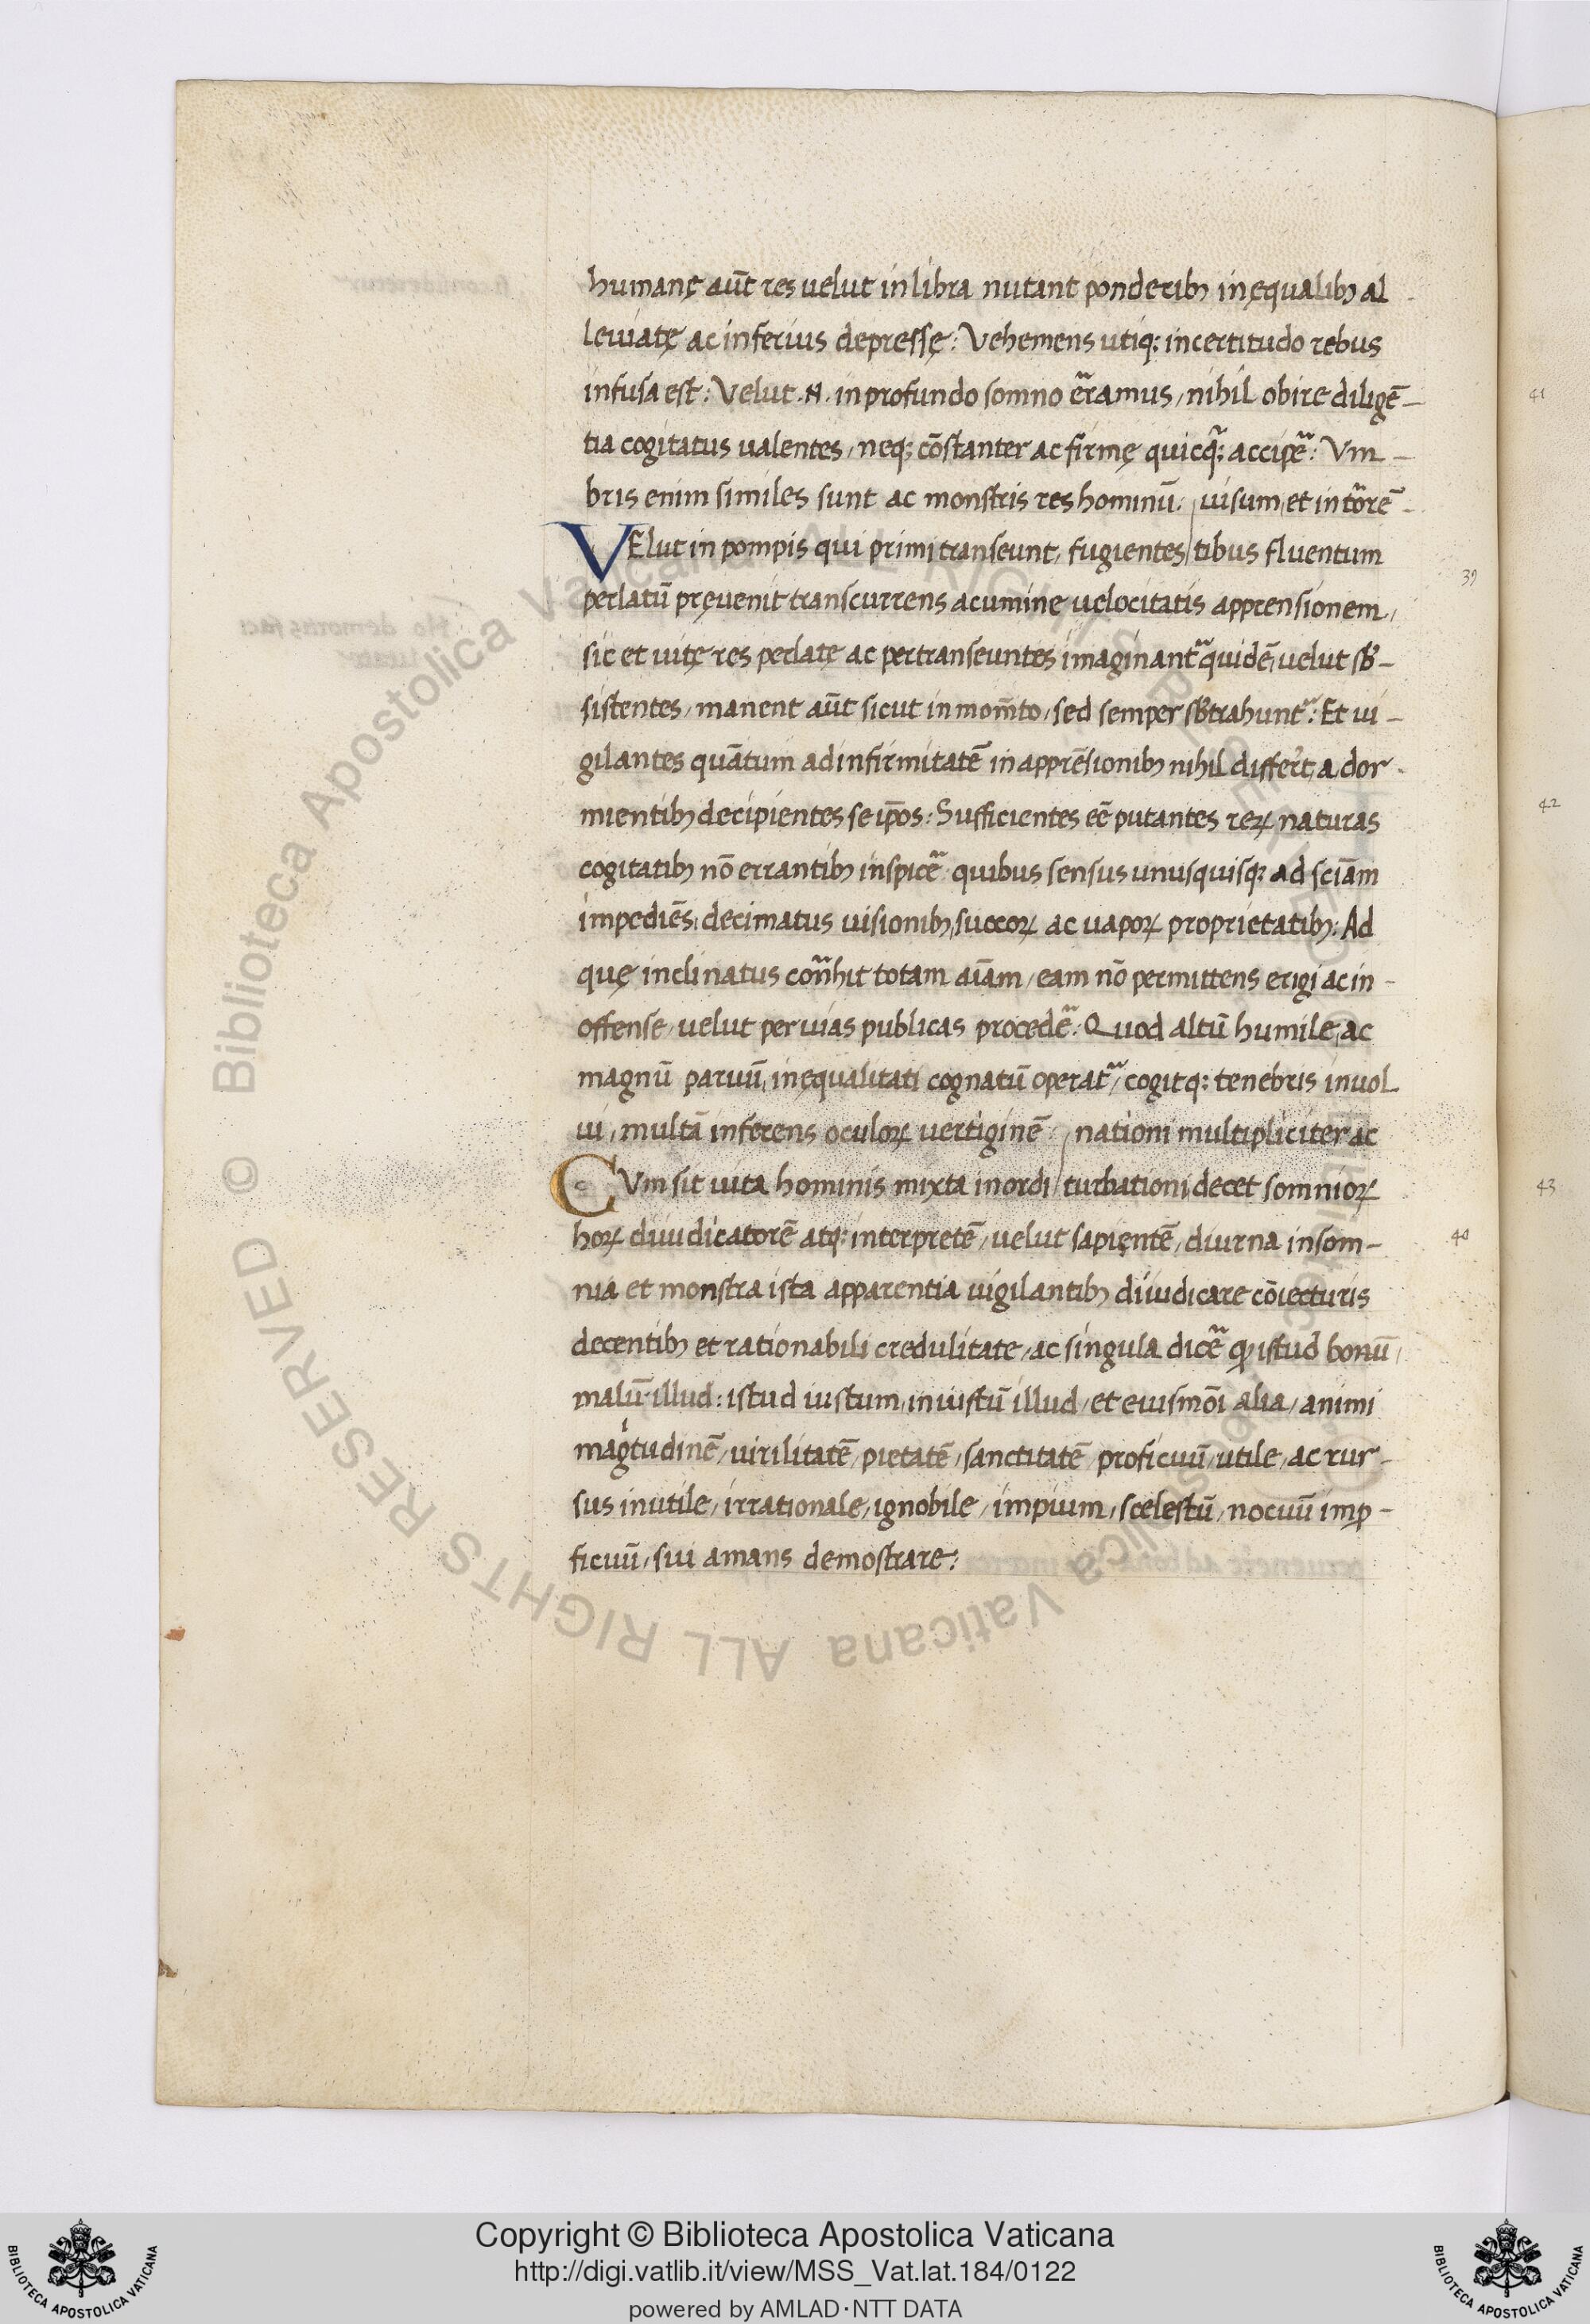 humanę aūt res uelut in libra nutant ponderibꝫ inęqualibꝫ al
leuiatę ac inferius depressę: Vehemens utiqꝫ incertitudo rebus
infusa est: Velut .N. in profundo somno er̃amus, nihil obire diligē-
tia cogitatus ualentes, neqꝫ cōstanter ac firmę quicq̃ꝫ accipe᷈: Vm-
bris enim similes sunt ac monstris res hominū.
uisum et intorē-
VElut in pompis qui primi transeunt, fugientes tibus fluentum
perlatū pręuenit transcurrens acumine uelocitatis apprensionem,
sic et uitę res perlatę ac pertranseuntes imaginant᷈ quidē, uelut sb̄-
sistentes, manent aūt sicut in mom̄to, sed semper sb̄trahunt᷈: Et ui-
gilantes quātum ad infirmitatē in apprēsionibꝫ nihil differt, a dor-
mientibꝫ decipientes se ip̄os: Sufficientes eē putantes reꝝ naturas
cogitatibꝫ nō errantibꝫ inspice᷈ quibus sensus unusquisqꝫ ad sciām
impediēs, decimatus uisionibꝫ, succoꝝ ac uapoꝝ proprietatibꝫ: Ad
quę inclinatus con᷈hit totam aīam, eam nō permittens erigi ac in-
offense, uelut per uias publicas procede᷈: Quod altū humile, ac
magnū paruū, inęqualitati cognatū operat᷈, cogitqꝫ tenebris inuol
ui, multā inferens oculoꝝ uertiginē
nationi multipliciter ac
CVm sit uita hominis mixta inordi turbationi, decet somnioꝝ
hoꝝ diiudicatorē atqꝫ interpretē, uelut sapiętē, diurna insom-
nia et monstra ista apparentia uigilantibꝫ diiudicare cōiecturis
decentibꝫ et rationabili credulitate, ac singula dice᷈ ꝙ istud bonū,
malū illud: istud iustum, iniustū illud, et eiusmōi alia, animi
magͥtudinē, uirilitatē, pietatē, sanctitatē proficuū, utile, ac rur-
sus inutile, irrationale, ignobile, impium, scelestū, nocuū imꝓ-
ficuū, sui amans demostrare:
39
40
41
42
43
© Biblioteca Apostolica Vaticana ALL RIGHTS RESERVED
© Biblioteca Apostolica Vaticana ALL RIGHTS RESERVED
Copyright © Biblioteca Apostolica Vaticana
http://digi.vatlib.it/view/MSS_Vat.lat.184/0122
powered by AMLAD·NTT DATA
BIBLIOTECA APOSTOLICA VATICANA
BIBLIOTECA APOSTOLICA VATICANA